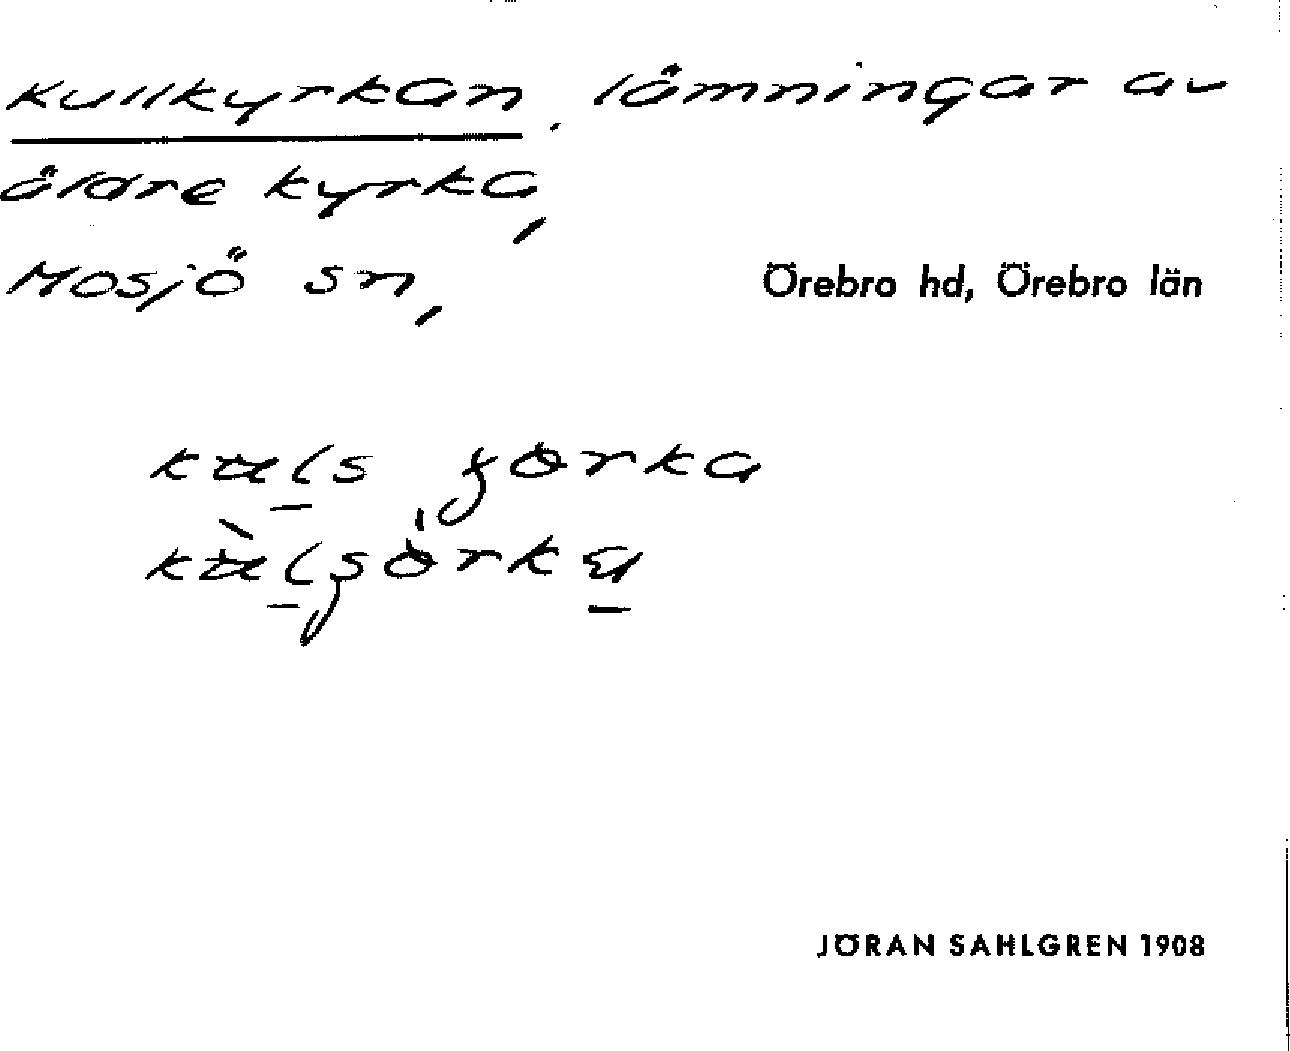 Kullkyrkan, lämningar av
äldre kyrka,
Mosjö sn, Örebro hd, Örebro län
JÖRAN SAHLGREN 1908